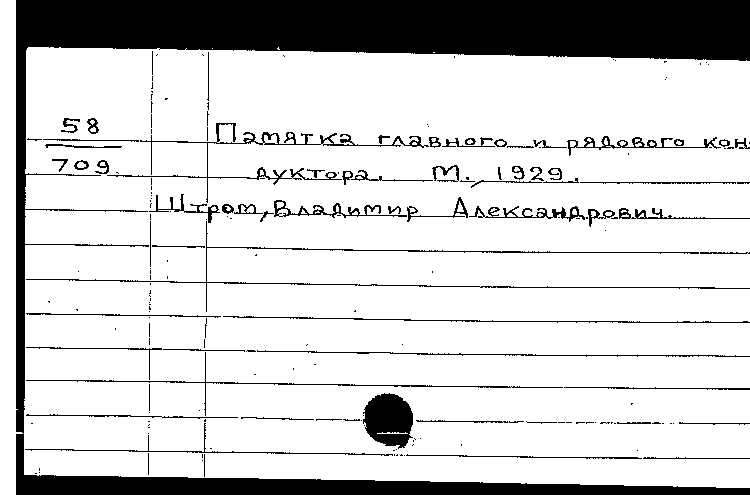 58
709
Памятка главного и рядового кон-
дуктора. М., 1929.
Штром, Владимир Александрович.